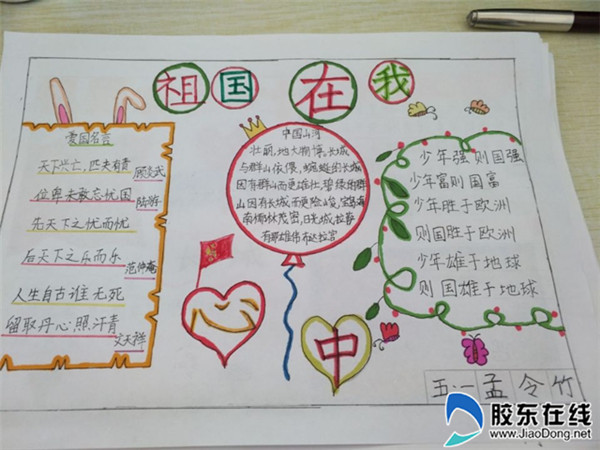 祖国在我
爱国名言
天下兴亡,匹夫有责
顾炎武
位卑未敢忘忧国
陆游
先天下之忧而忧
后天下之乐而乐
范仲淹
人生自古谁无死
留取丹心照汗青
文天祥
中国山河
壮丽,地大物博,长城
与群山依偎,蜿蜒的长城
因有群山而更雄壮,碧绿的群
山因有长城而更险峻,宝岛海
南椰林茂密,日光城拉萨
有那雄伟布达拉宫
少年强则国强
少年富则国富
少年胜于欧洲
则国胜于欧洲
少年雄于地球
则国雄于地球
中
五·一孟令竹
胶东在线
www.JiaoDong.net